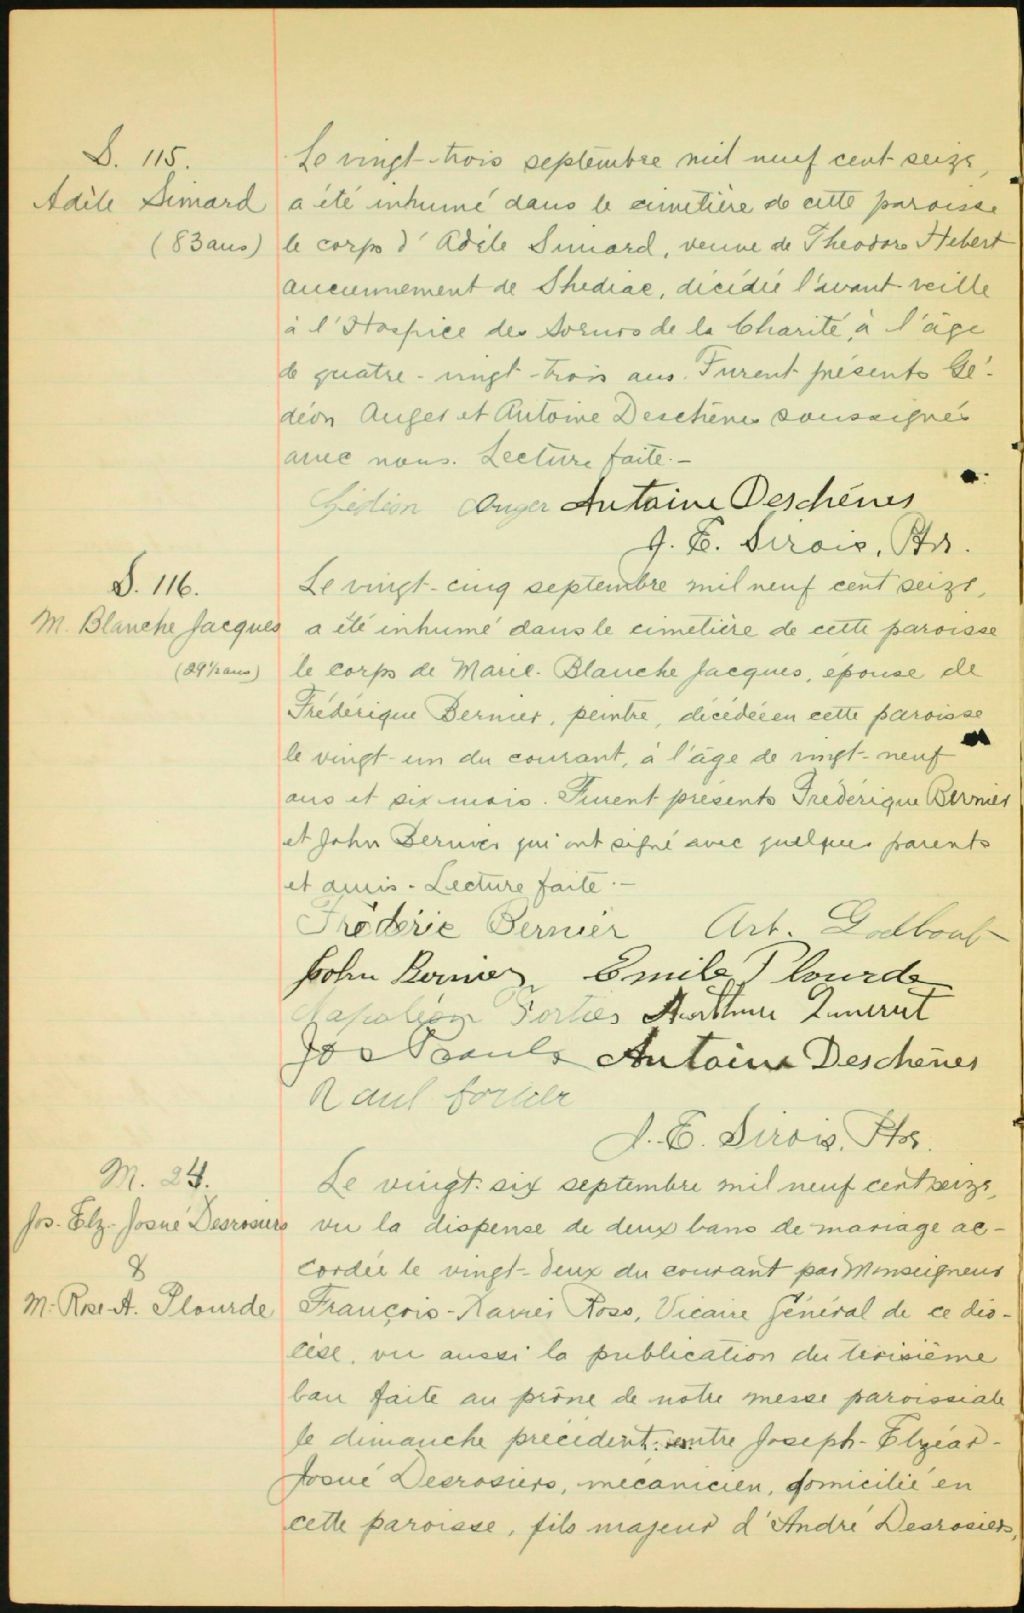 S. 115.
Adèle Simard
(83 ans)
Le vingt-trois septembre mil neuf cent seize,
a été inhumé dans le cimetière de cette paroisse
le corps d'Adèle Simard, veuve de Théodore Hebert
anciennement de Shediac, décédée l'avant-veille
à l'Hospice des Soeurs de la Charité, à l'âge
de quatre-vingt-trois ans. Furent présents Gé-
déon Auger et Antoine Deschênes soussignés
avec nous. Lecture faite.-
Gédéon Auger Antoine Deschênes
J. E. Sirois, Ptre.
S. 116.
M. Blanche Jacques
(29 1/2 ans)
Le vingt-cinq septembre mil neuf cent seize,
a été inhumé dans le cimetière de cette paroisse
le corps de Marie-Blanche Jacques, épouse de
Frédérique Bernier, peintre, décédée en cette paroisse
le vingt-un du courant, à l'âge de vingt-neuf
ans et six mois. Furent présents Frédérique Bernier
et John Bernier qui ont signé avec quelques parents
et amis. Lecture faite.-
Fréderic Bernier Art. Godbout
John Bernier Emile Plourde
Napoléon Fortier Arthur
Jos Antoine Deschênes
Raul fortier
J. E. Sirois, Ptre.
M. 24.
Jos-Elz-Josué Desrosiers
&
M-Rose-A. Plourde
Le vingt-six septembre mil neuf cent seize,
vu la dispense de deux bans de mariage ac-
cordée le vingt-deux du courant par Monseigneur
François-Xavier Ross, Vicaire Général de ce dio-
cèse, vu aussi la publication du troisième
ban faite au prône de notre messe paroissiale
le dimanche précédent, entre Joseph-Elzéar-
Josué Desrosiers, mécanicien, domicilié en
cette paroisse, fils majeur d'André Desrosiers,